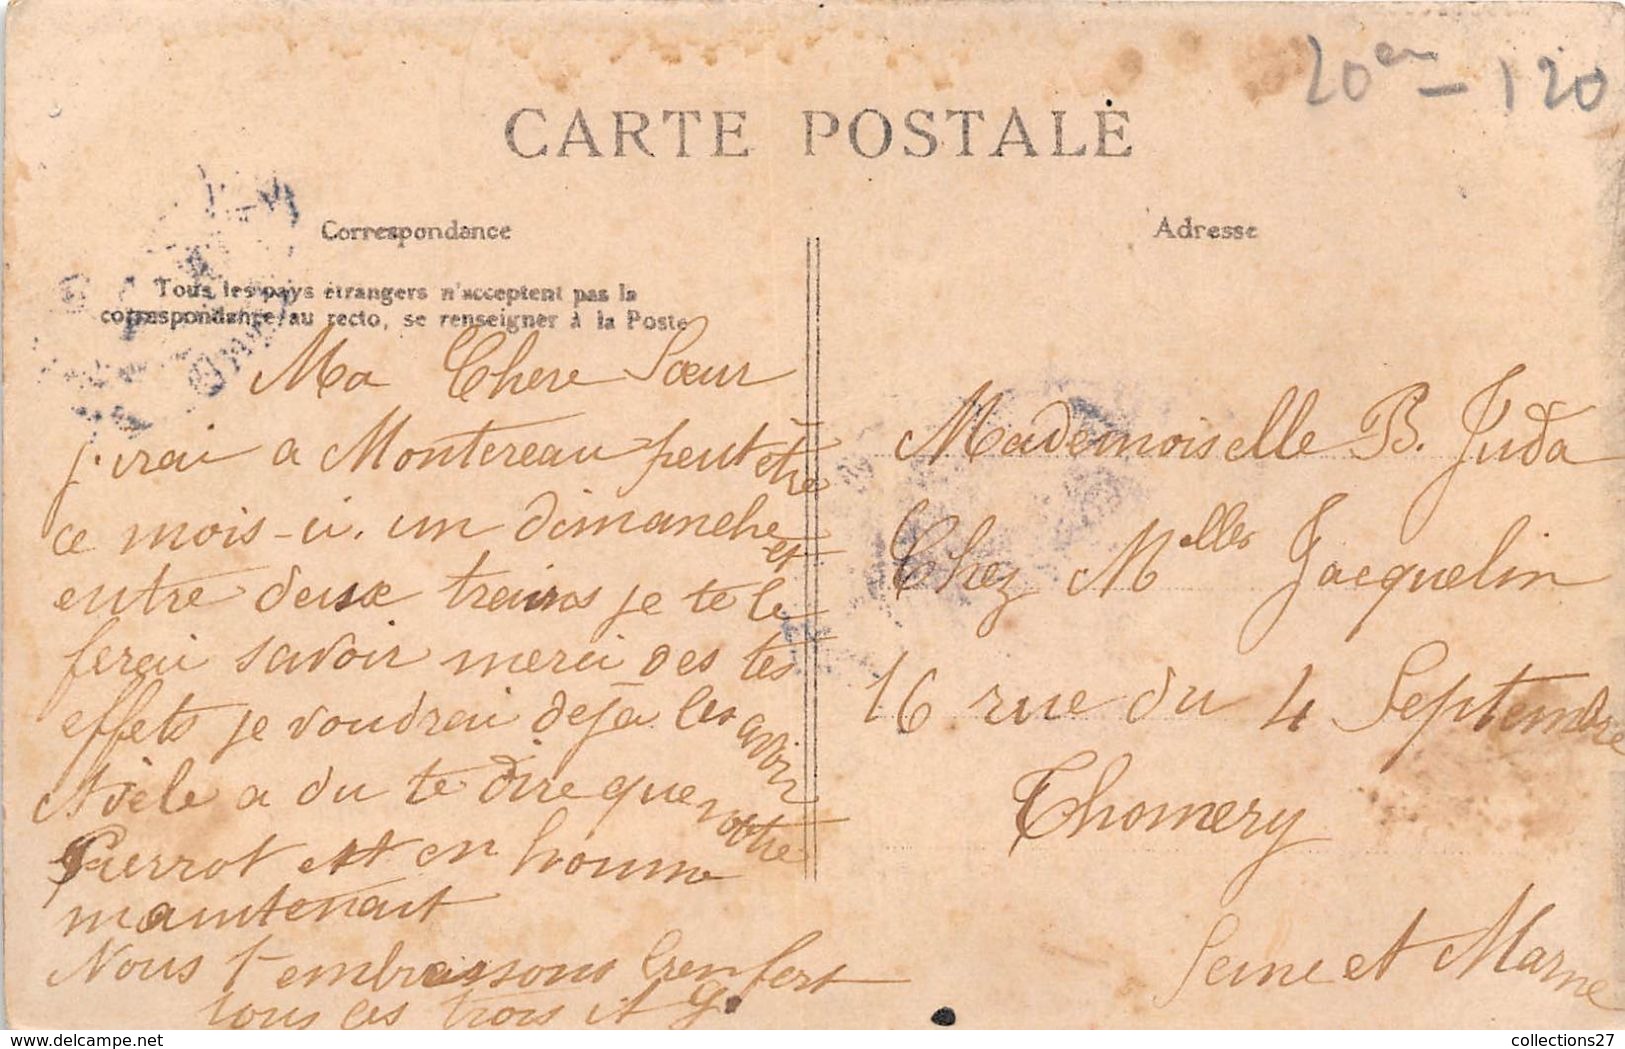 20en - 120
CARTE POSTALE
Correspondance
Tous les pays étrangers n'acceptent pas la
correspondance au recto, se renseigner à la Poste
Ma Chere Sœur
j'irai a Montereau peut être
ce mois-ci. un dimanche et
entre deux trains je te le
ferai savoir merci des tes
effets je voudrai deja les avoir
Adèle a du te dire que notre
Pierrot est en homme
maintenant
Nous t'embrassons bien fort
tous les trois
Adresse
Mademoiselle B. Juda
Chez Melles Jacquelin
16 rue du 4 Septembre
Thomery
Seine et Marne
delcampe.net
collections27